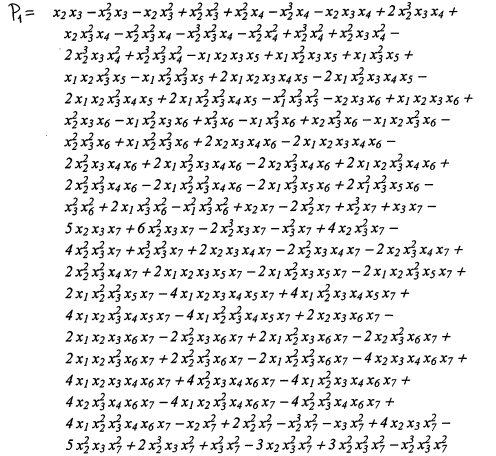 P₁ = x₂x₃ − x₂²x₃ − x₂x₃² + x₂²x₃² + x₂²x₄ − x₂³x₄ − x₂x₃x₄ + 2x₂³x₃x₄ +
x₂x₃²x₄ − x₂²x₃²x₄ − x₂³x₃²x₄ − x₂²x₄² + x₂³x₄² + x₂²x₃x₄² −
2x₂³x₃x₄² + x₂³x₃²x₄² − x₁x₂x₃x₅ + x₁x₂²x₃x₅ + x₁x₃²x₅ +
x₁x₂x₃²x₅ − x₁x₂²x₃²x₅ + 2x₁x₂x₃x₄x₅ − 2x₁x₂²x₃x₄x₅ −
2x₁x₂x₃²x₄x₅ + 2x₁x₂²x₃²x₄x₅ − x₁²x₃²x₅² − x₂x₃x₆ + x₁x₂x₃x₆ +
x₂²x₃x₆ − x₁x₂²x₃x₆ + x₃²x₆ − x₁x₃²x₆ + x₂x₃²x₆ − x₁x₂x₃²x₆ −
x₂²x₃²x₆ + x₁x₂²x₃²x₆ + 2x₂x₃x₄x₆ − 2x₁x₂x₃x₄x₆ −
2x₂²x₃x₄x₆ + 2x₁x₂²x₃x₄x₆ − 2x₂x₃²x₄x₆ + 2x₁x₂x₃²x₄x₆ +
2x₂²x₃²x₄x₆ − 2x₁x₂²x₃²x₄x₆ − 2x₁x₃²x₅x₆ + 2x₁²x₃²x₅x₆ −
x₃²x₆² + 2x₁x₃²x₆² − x₁²x₃²x₆² + x₂x₇ − 2x₂²x₇ + x₂³x₇ + x₃x₇ −
5x₂x₃x₇ + 6x₂²x₃x₇ − 2x₂³x₃x₇ − x₃²x₇ + 4x₂x₃²x₇ −
4x₂²x₃²x₇ + x₂³x₃²x₇ + 2x₂x₃x₄x₇ − 2x₂²x₃x₄x₇ − 2x₂x₃²x₄x₇ +
2x₂²x₃²x₄x₇ + 2x₁x₂x₃x₅x₇ − 2x₁x₂²x₃x₅x₇ − 2x₁x₂x₃²x₅x₇ +
2x₁x₂²x₃²x₅x₇ − 4x₁x₂x₃x₄x₅x₇ + 4x₁x₂²x₃x₄x₅x₇ +
4x₁x₂x₃²x₄x₅x₇ − 4x₁x₂²x₃²x₄x₅x₇ + 2x₂x₃x₆x₇ −
2x₁x₂x₃x₆x₇ − 2x₂²x₃x₆x₇ + 2x₁x₂²x₃x₆x₇ − 2x₂x₃²x₆x₇ +
2x₁x₂x₃²x₆x₇ + 2x₂²x₃²x₆x₇ − 2x₁x₂²x₃²x₆x₇ − 4x₂x₃x₄x₆x₇ +
4x₁x₂x₃x₄x₆x₇ + 4x₂²x₃x₄x₆x₇ − 4x₁x₂²x₃x₄x₆x₇ +
4x₂x₃²x₄x₆x₇ − 4x₁x₂x₃²x₄x₆x₇ − 4x₂²x₃²x₄x₆x₇ +
4x₁x₂²x₃²x₄x₆x₇ − x₂x₇² + 2x₂²x₇² − x₂³x₇² − x₃x₇² + 4x₂x₃x₇² −
5x₂²x₃x₇² + 2x₂³x₃x₇² + x₃²x₇² − 3x₂x₃²x₇² + 3x₂²x₃²x₇² − x₂³x₃²x₇²